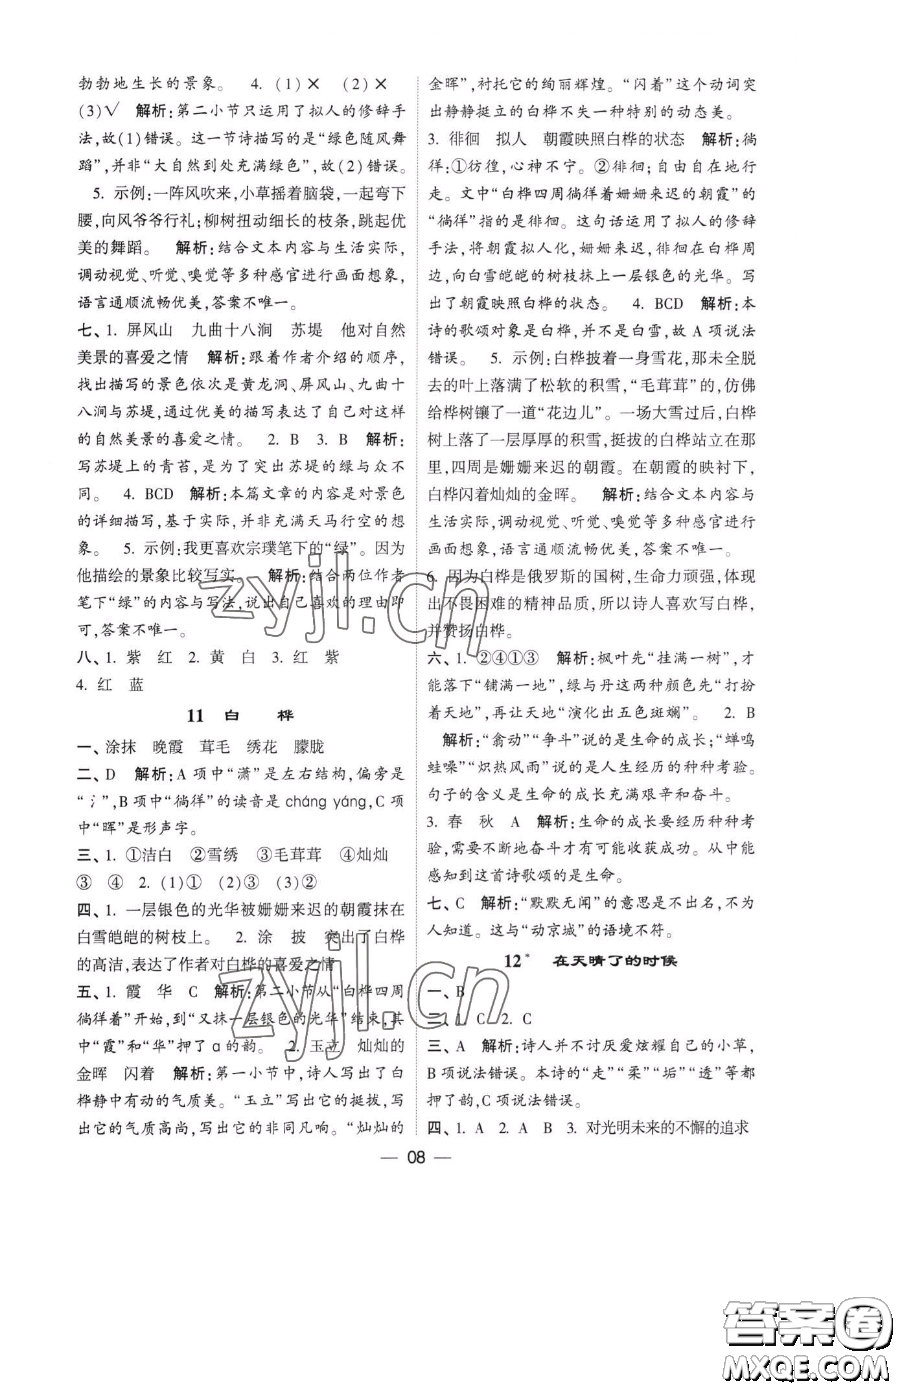 勃勃地生长的景象。 4. (1)× (2)×
(3)√ 解析:第二小节只运用了拟人的修辞手
法,故(1)错误。这一节诗描写的是“绿色随风舞
蹈”,并非“大自然到处充满绿色”,故(2)错误。
5. 示例:一阵风吹来,小草摇着脑袋,一起弯下
腰,向风爷爷行礼;柳树扭动细长的枝条,跳起优
美的舞蹈。 解析:结合文本内容与生活实际,
调动视觉、听觉、嗅觉等多种感官进行画面想象,
语言通顺流畅优美,答案不唯一。
七、1. 屏风山 九曲十八涧 苏堤 他对自然
美景的喜爱之情 解析:跟着作者介绍的顺序,
找出描写的景色依次是黄龙洞、屏风山、九曲十
八涧与苏堤,通过优美的描写表达了自己对这样
的自然美景的喜爱之情。 2. B 3. B 解析:
写苏堤上的青苔,是为了突出苏堤的绿与众不
同。 4. BCD 解析:本篇文章的内容是对景色
的详细描写,基于实际,并非满天马行空的想
象。 5. 示例:我更喜欢宗璞笔下的“绿”。因为
他描绘的景象比较写实。 解析:结合两位作者
笔下“绿”的内容与写法,说出自己喜欢的理由即
可,答案不唯一。
八、1. 紫 红 2. 黄 白 3. 红 紫
4. 红 蓝
11 白 桦
一、涂抹 晚霞 茸毛 绣花 朦胧
二、D 解析:A 项中“潇”是左右结构,偏旁是
“氵”,B项中“徜徉”的读音是 cháng yáng,C 项
中“晖”是形声字。
三、1. ①洁白 ②雪绣 ③毛茸茸 ④灿灿
③ ④ 2. (1)① (2)③ (3)②
四、1. 一层银色的光华被姗姗来迟的朝霞抹在
白雪皑皑的树枝上。 2. 涂 披 突出了白桦
的高洁,表达了作者对白桦的喜爱之情
五、1. 霞 华 C 解析:第二小节从“白桦四周
徜徉着”开始,到“又抹一层银色的光华”结束,其
中“霞”和“华”押了 ɑ 的韵。 2. 玉立 灿灿的
金晖 闪着 解析:第一小节中,诗人写出了白
桦静中有动的气质美。“玉立”写出它的挺拔,写
出它的气质高尚,写出它的非同凡响。“灿灿的
金晖”,衬托它的绚丽辉煌。“闪着”这个动词突
出静静挺立的白桦不失一种特别的动态美。
3. 徘徊 拟人 朝霞映照白桦的状态 解析:徜
徉:①彷徨,心神不宁。②徘徊;自由自在地行
走。文中“白桦四周徜徉着姗姗来迟的朝霞”的
“徜徉”指的是徘徊。这句话运用了拟人的修辞
手法,将朝霞拟人化,姗姗来迟,徘徊在白桦周
边,向白雪皑皑的树枝抹上一层银色的光华。写
出了朝霞映照白桦的状态。 4. BCD 解析:本
诗的歌颂对象是白桦,并不是白雪,故 A 项说法
错误。 5. 示例:白桦披着一身雪花,那未全脱
去的叶上落满了松软的积雪,“毛茸茸”的,仿佛
给桦树镶了一道“花边儿”。一场大雪过后,白桦
树上落了一层厚厚的积雪,挺拔的白桦站立在那
里,四周是姗姗来迟的朝霞。在朝霞的映衬下,
白桦闪着灿灿的金晖。 解析:结合文本内容与
生活实际,调动视觉、听觉、嗅觉等多种感官进行
画面想象,语言通顺流畅优美,答案不唯一。
6. 因为白桦是俄罗斯的国树,生命力顽强,体现
出不畏困难的精神品质,所以诗人喜欢写白桦,
并赞扬白桦。
六、1. ②④①③ 解析:枫叶先“挂满一树”,才
能落下“铺满一地”,绿与丹这两种颜色先“打扮
着天地”,再让天地“演化出五色斑斓”。 2. B
解析:“翕动”“争斗”说的是生命的成长;“蝉鸣
蛙噪”“炽热风雨”说的是人生经历的种种考验。
句子的含义是生命的成长充满艰辛和奋斗。
3. 春 秋 A 解析:生命的成长要经历种种考
验,需要不断地奋斗才有可能收获成功。从中能
感知到这首诗歌颂的是生命。
七、C 解析:“默默无闻”的意思是不出名,不为
人知道。这与“动京城”的语境不符。
12* 在天晴了的时候
一、B
二、1. C 2. C
三、A 解析:诗人并不讨厌爱炫耀自己的小草,
B 项说法错误。本诗的“走”“柔”“垢”“透”等都
押了韵,C项说法错误。
四、1. A 2. A B 3. 对光明未来的不懈的追求
— 08 —
zyjl.cn
zyjl.cn
答案圈
MXQE.COM